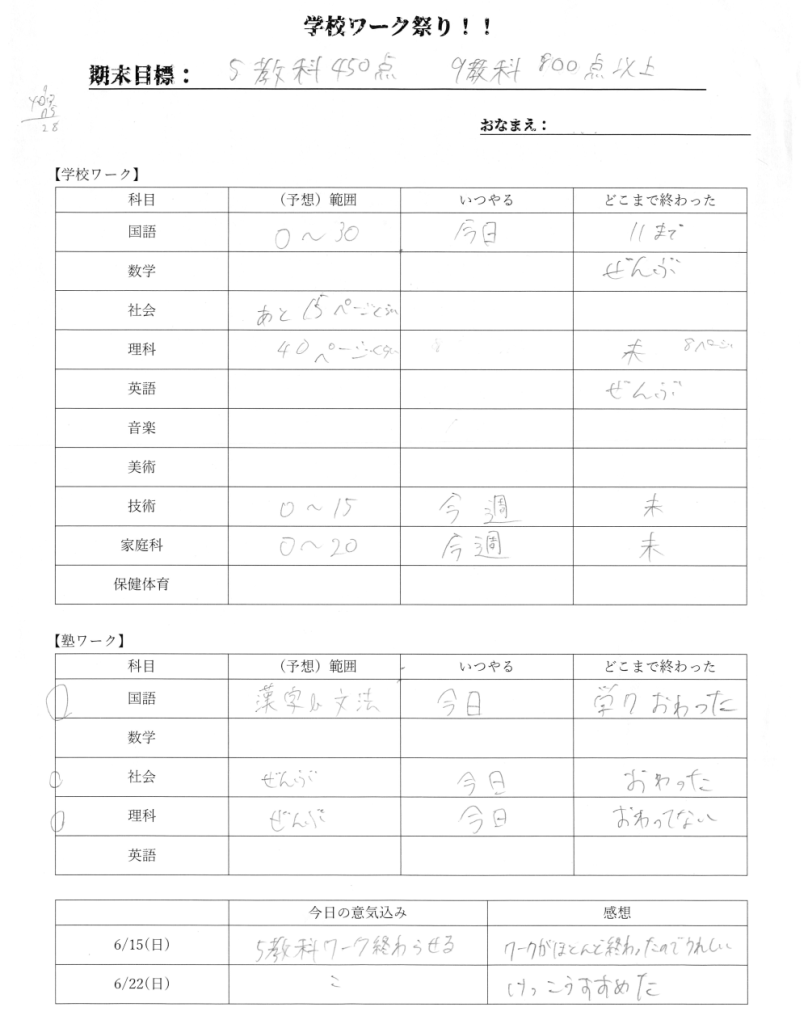 学校ワーク祭り！！
期末目標： 5教科450点 9教科800点以上
おなまえ：
【学校ワーク】
科目 （予想）範囲 いつやる どこまで終わった
国語 0～30 今日 11まで
数学 ぜんぶ
社会 あと15ページくらい
理科 40ページくらい 未 8ページ
英語 ぜんぶ
音楽
美術
技術 0～15 今週 未
家庭科 0～20 今週 未
保健体育
【塾ワーク】
科目 （予想）範囲 いつやる どこまで終わった
国語 漢字&文法 今日 おわった
数学
社会 ぜんぶ 今日 おわった
理科 ぜんぶ 今日 おわってない
英語
今日の意気込み 感想
6/15(日) 5教科ワーク終わらせる ワークがほとんど終わったのでうれしい
6/22(日) けっこうすすめた